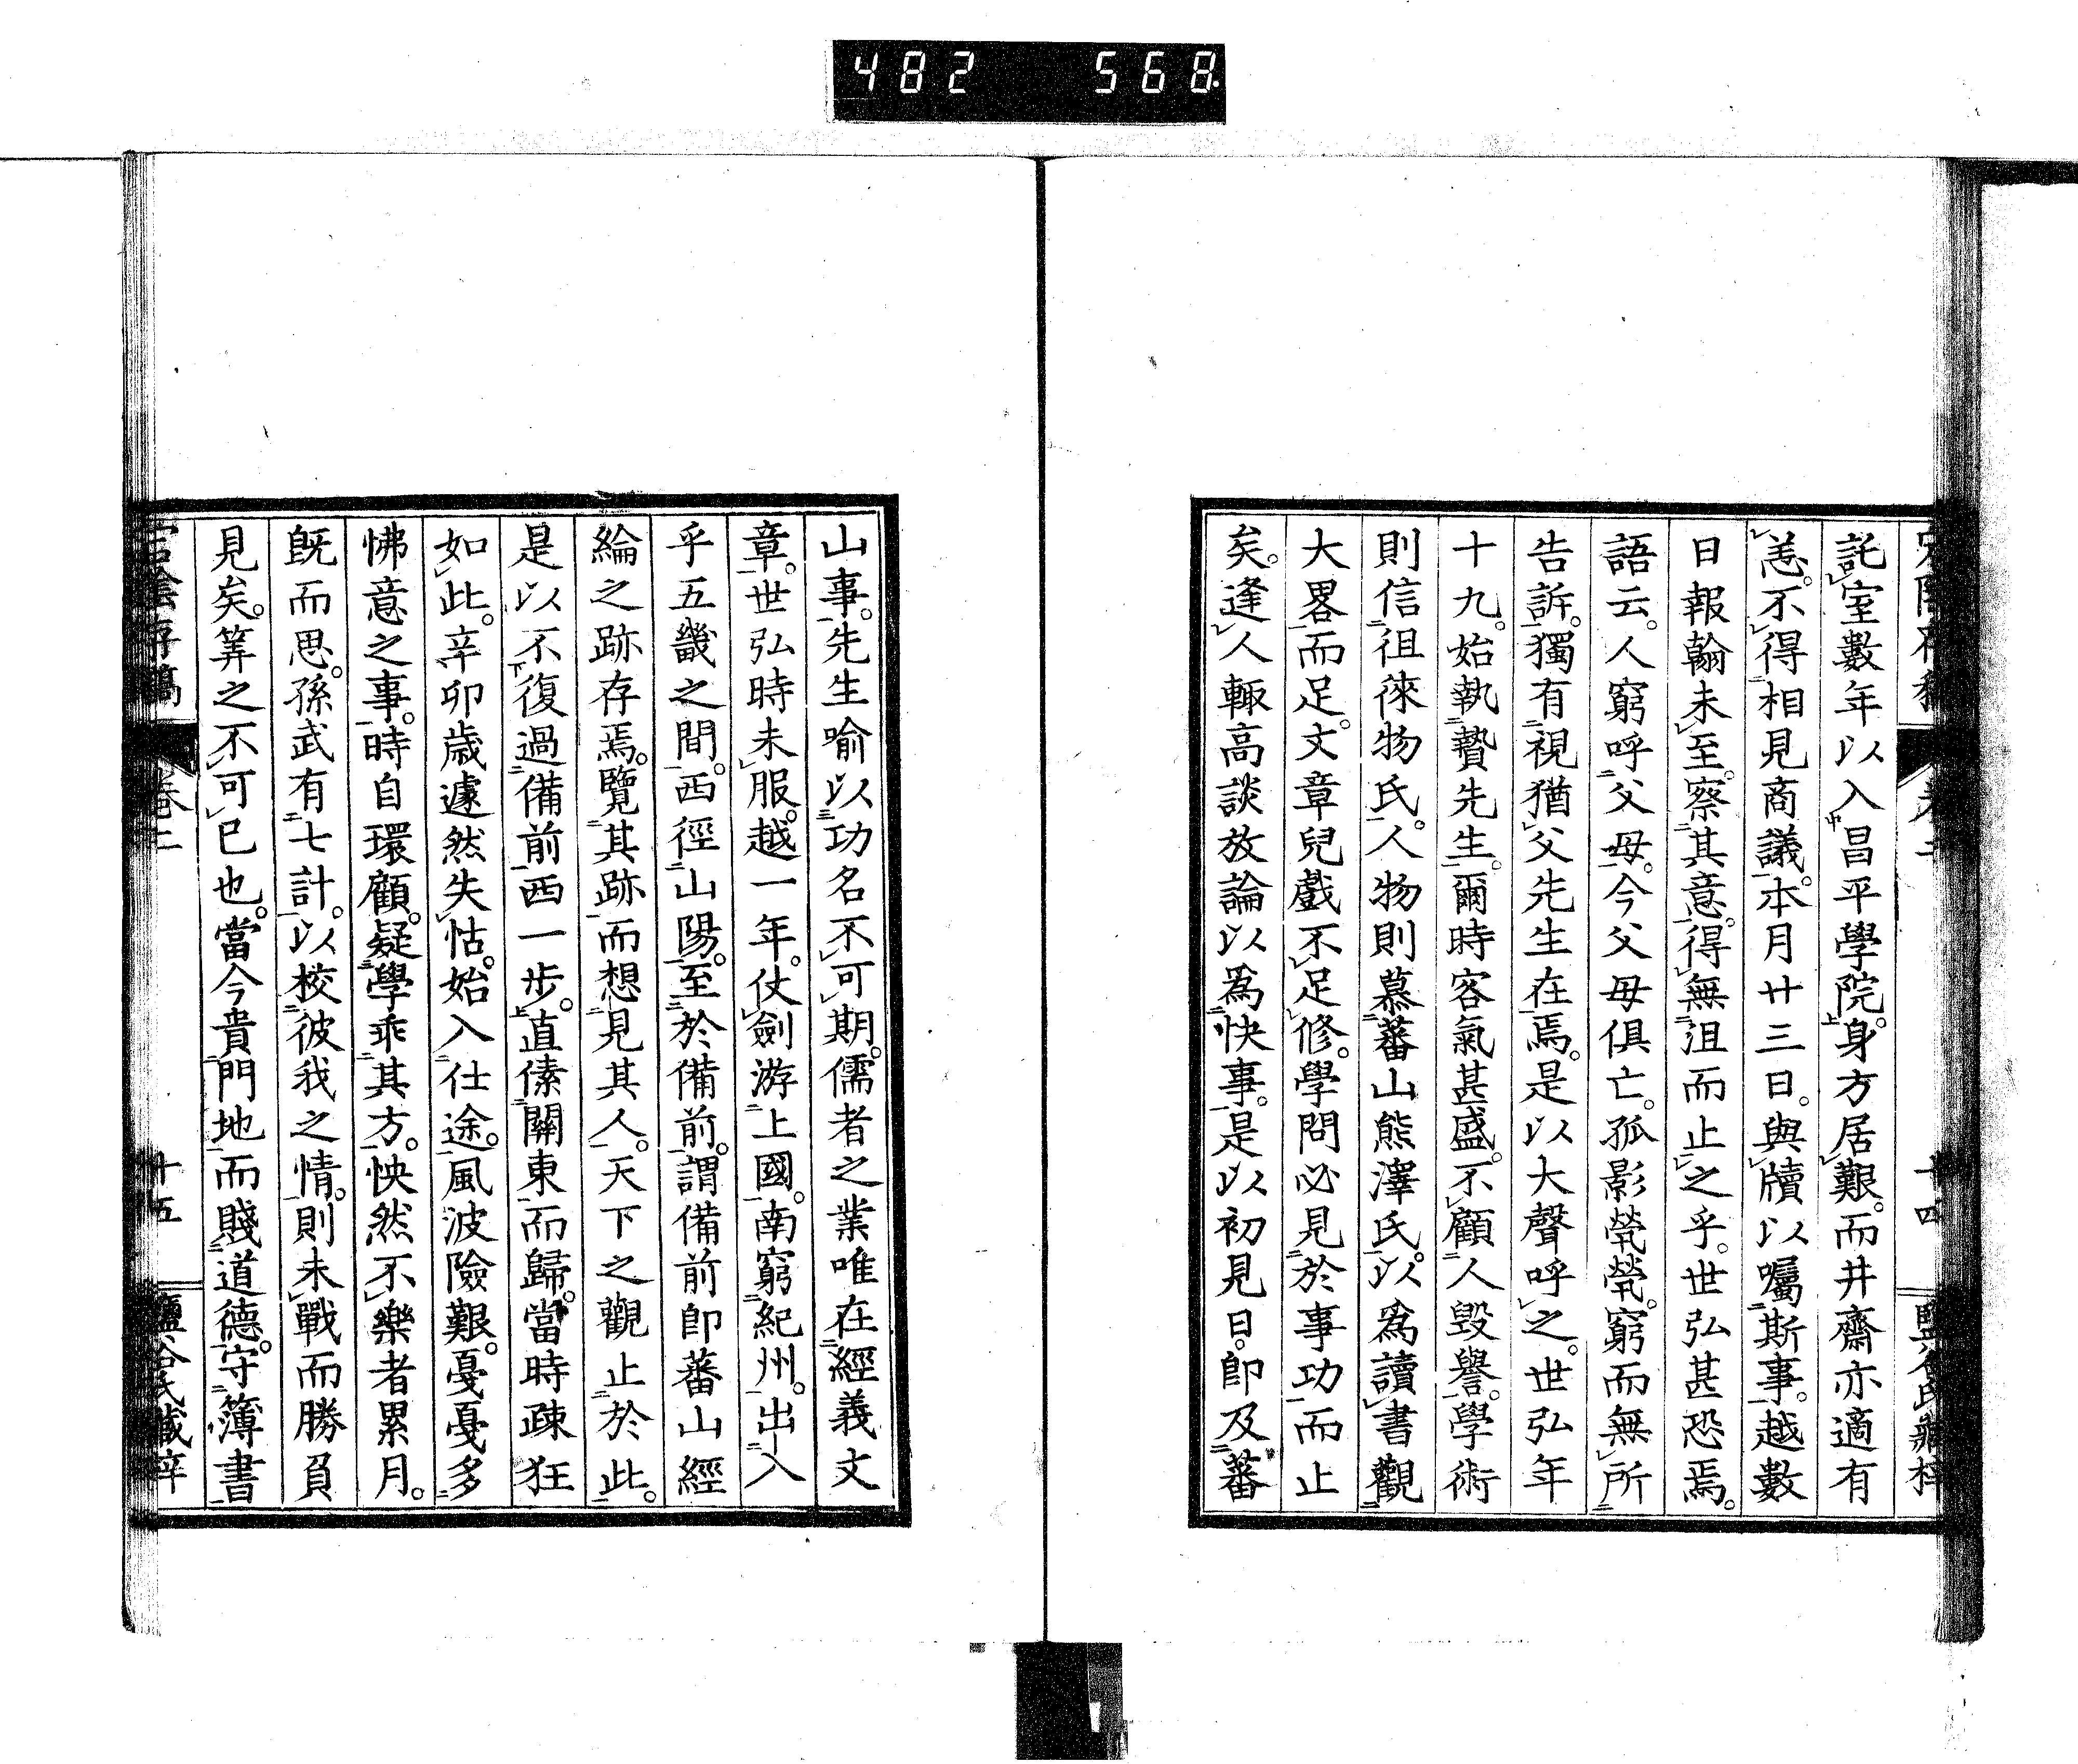 482 568
託室數年以入昌平學院。身方居艱。而井齋亦適有
恙。不得相見商議。本月廿三日。與牘以囑斯事。越數
日報翰未至。察其意。得無沮而止之乎。世弘甚恐焉。
語云。人窮呼父母。今父母俱亡。孤影煢煢。窮而無所
告訴。獨有視猶父先生在焉。是以大聲呼之。世弘年
十九。始執贄先生。爾時客氣甚盛。不顧人毀譽。學術
則信徂徠物氏。人物則慕蕃山熊澤氏。以爲讀書觀
大畧而足。文章兒戲不足修。學問必見於事功而止
矣。逢人輙高談放論以爲快事。是以初見日。卽及蕃
山事。先生喻以功名不可期。儒者之業唯在經義文
章。世弘時未服。越一年。仗劍游上國。南窮紀州。出入
乎五畿之間。西徑山陽。至於備前。謂備前卽蕃山經
綸之跡存焉。覽其跡而想見其人。天下之觀止於此。
是以不復過備前西一步。直傃關東而歸。當時疎狂
如此。辛卯歲遽然失怙。始入仕途。風波險艱。戞戞多
怫意之事。時自環顧。疑學乖其方。怏然不樂者累月。
旣而思。孫武有七計。以校彼我之情。則未戰而勝負
見矣。筭之不可已也。當今貴門地而賤道德。守簿書
宕陰存稿 卷二 十五 鹽谷氏藏梓